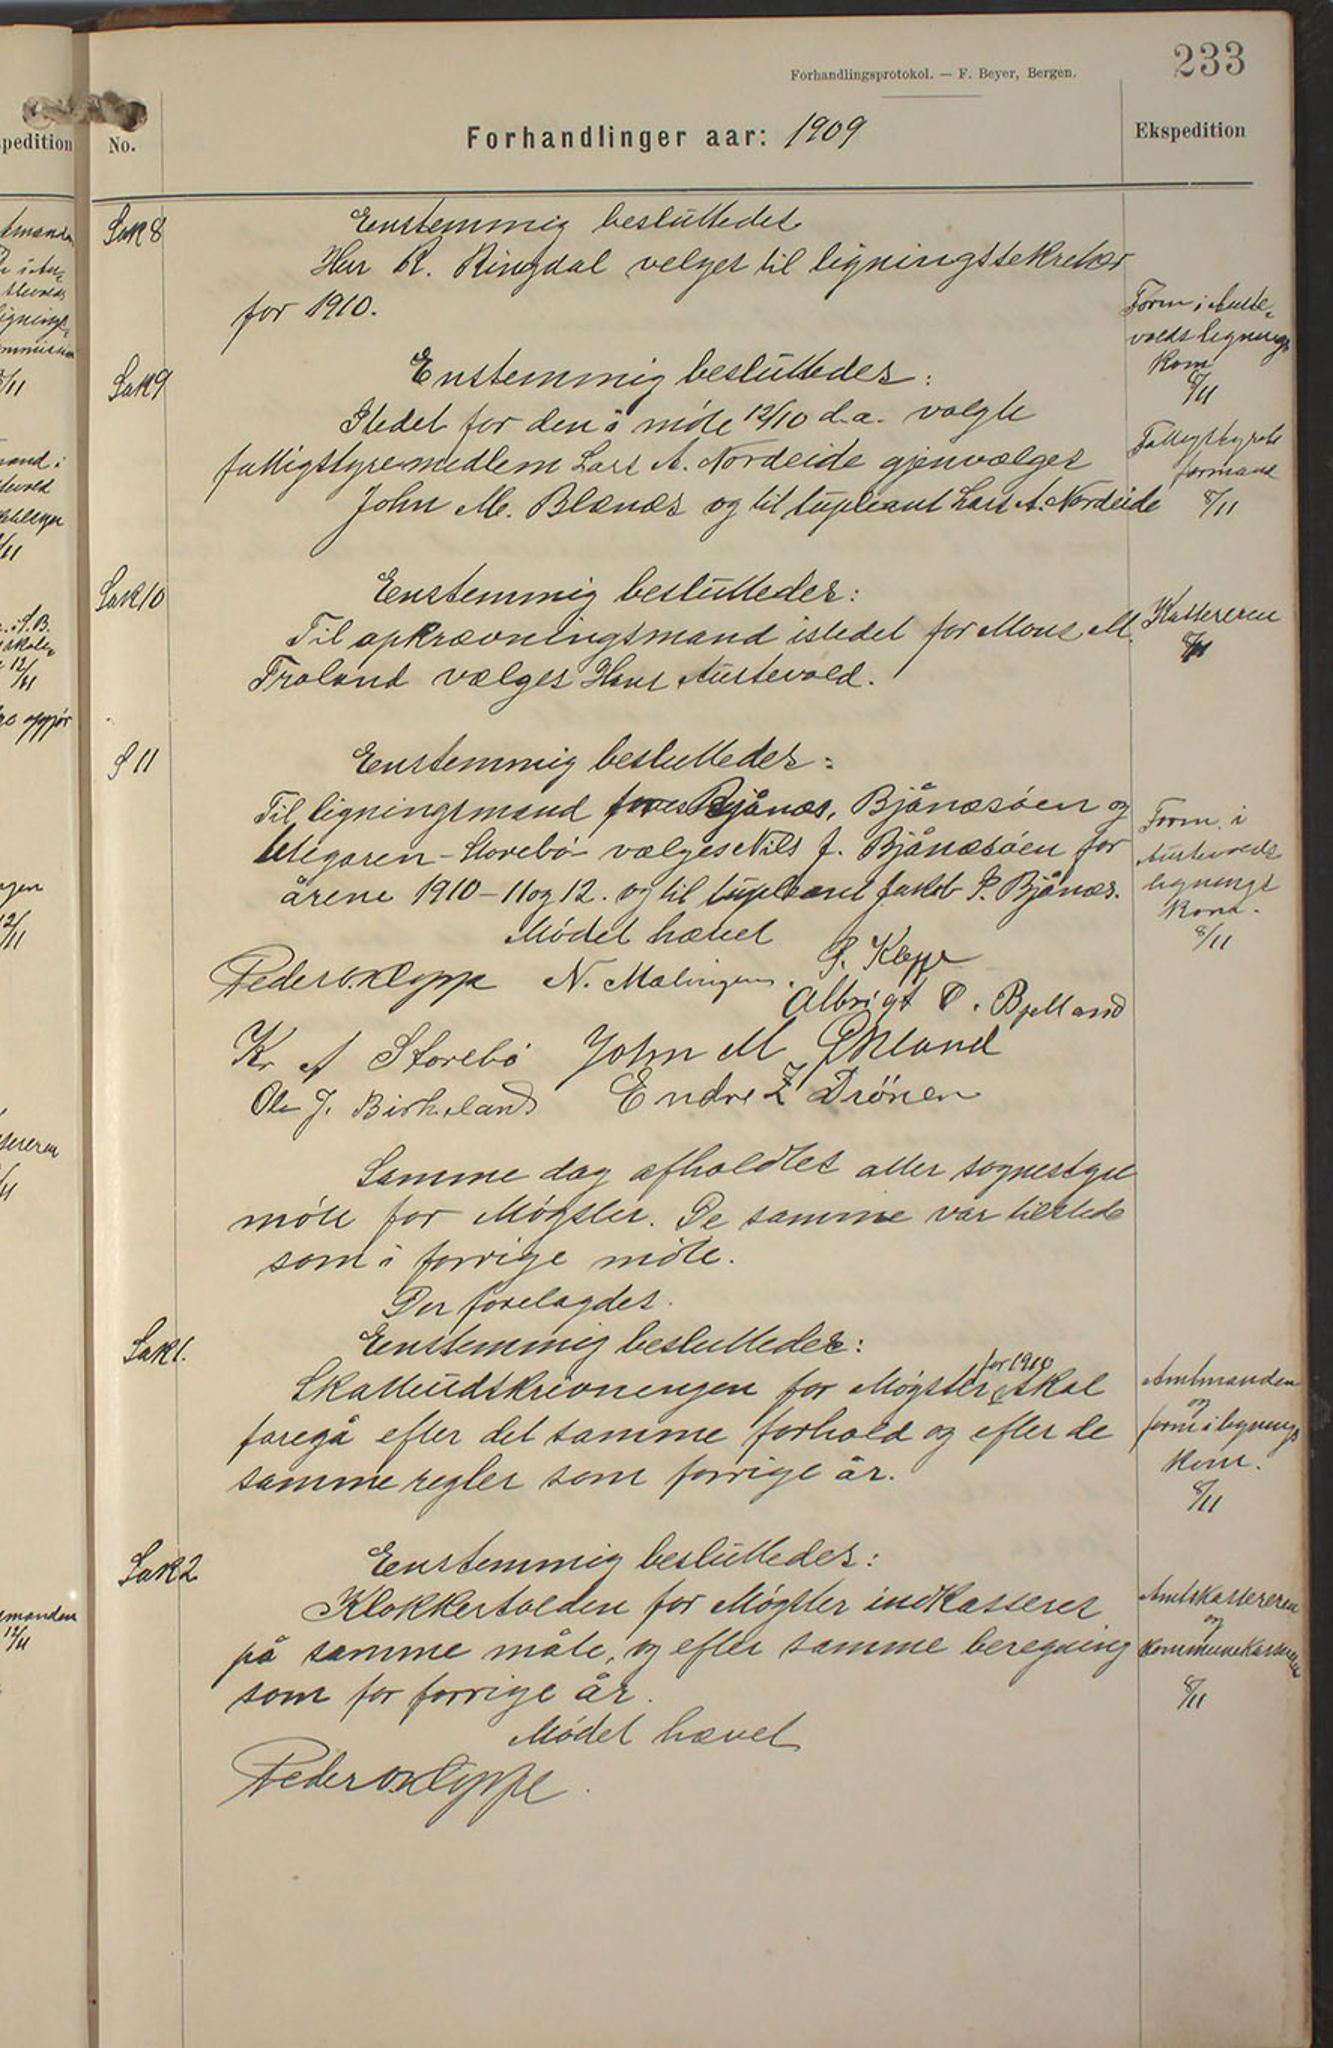 233
Forhandlingsprotokol. — F. Beyer, Bergen.
No.
Forhandlinger aar: 1909
Ekspedition
Sak 8
Eenstemmig besluttedes
Herr R. Ringdal velges til ligningssekretær
for 1910.
Form i Auste-
volds lignings
kom
8/11
Sak 9
Enstemmig besluttedes:
Stedet for den i møte 12/10 d.a. valgte
fattigstyremedlem Lars A. Nordeide gjenvælges
John M. Blænes og til supleant Lars A. Nordeide
Fattigstyrets
formand
8/11
Sak 10
Eenstemmig besluttedes:
Til opkrævningsmand istedet for Mons M.
Froland vælges Hans Austevold.
Kassereren
8/11
S 11
Eenstemmig besluttedes:
Til ligningsmand for Bjånæs, Bjånæsöen og
- Storebö vælges Nils J. Bjånæsöen for
årene 1910 - 11 og 12. og til supleant Jakob P. Bjånæs.
Form. i
Austevolds
lignings
kom.
8/11
Mødet hævet
Peder O. Kleppe N. Malingen. S. Kleppe
Albrigt O. Bjelland
Kr A Storebö John M Økland
Ole J. Birkeland Endre Z Drönen
Samme dag afholdtes atter sognestyre
möte for Møgster. De samme var tilstede
som i forrige möte.
Der forelagdes.
Sak 1.
Eenstemmig besluttedes:
Skatteudskrivningen for Møgster for 1910 skal
foregå efter det samme forhold og efter de
samme regler som forrige år.
Amtmanden
og
form i lignings
kom.
8/11
Sak 2
Eenstemmig besluttedes:
Klokkertolden for Møgster indkasseres
på samme måte, og efter samme beregning
som for forrige år.
Amtskassereren
og
kommunekasseren
8/11
Mødet hævet
Peder O. Kleppe.